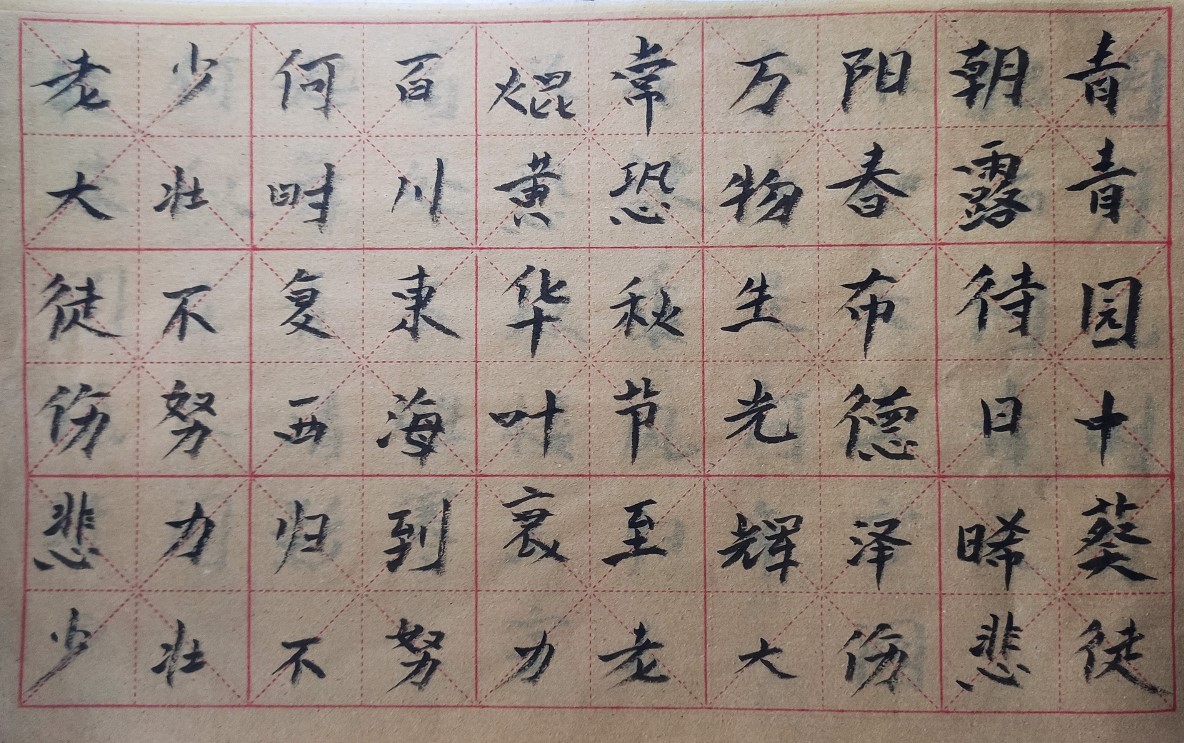 青青园中葵
朝露待日晞
阳春布德泽
万物生光辉
常恐秋节至
焜黄华叶衰
百川東海到
何时复西归
少壮不努力
老大徒伤悲
少壮不努力老大伤悲徒